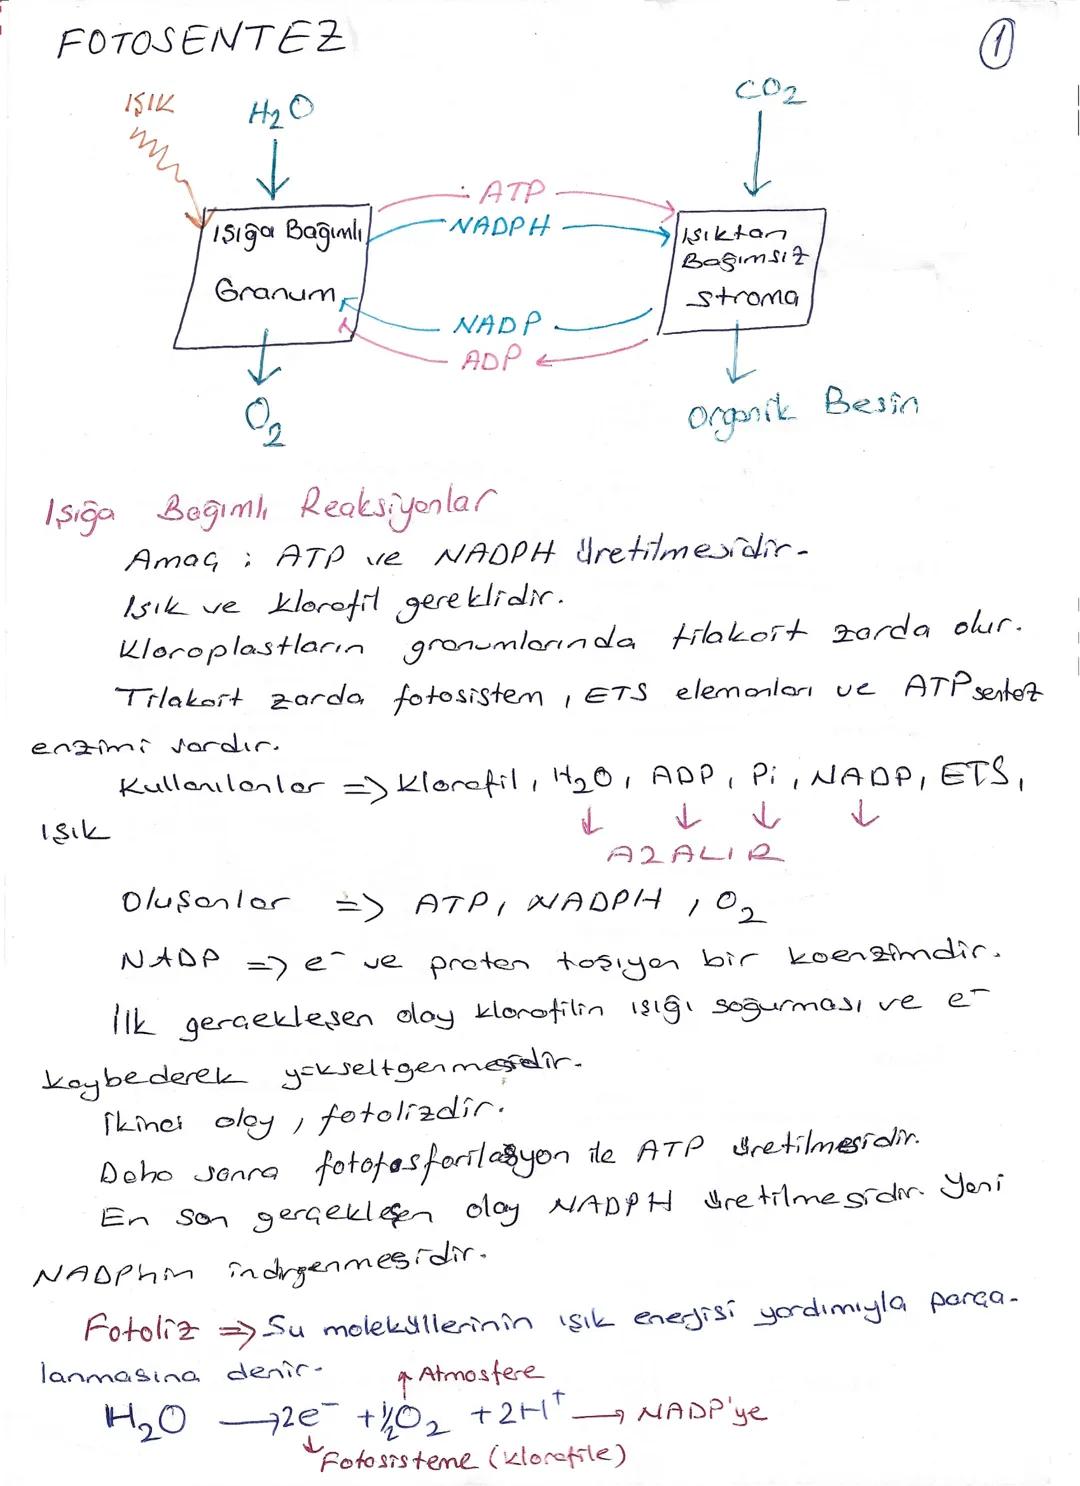 FOTOSENTEZ
1
IŞIK
H2O
CO2
ATP
NADPH
Işığa Bağımlı
Granum
Işıktan
Bağımsız
Stroma
NADP
ADP
O2
Organik Besin
Işığa Bağımlı Reaksiyonlar
Amaç ; ATP ve NADPH üretilmesidir.
Işık ve klorofil gereklidir.
Kloroplastların granumlarında tilakoit zarda olur.
Tilakoit zarda fotosistem, ETS elemanları ve ATP sentez
enzimi vardır.
Kullanılanlar => Klorofil, H2O, ADP, Pi, NADP, ETS,
ışık
↓ ↓ ↓ ↓
AZALIR
Oluşanlar => ATP, NADPH, O2
NADP => e⁻ ve proton taşıyan bir koenzimdir.
İlk gerçekleşen olay klorofilin ışığı soğurması ve e⁻
kaybederek yükseltgenmesidir.
İkinci olay, fotolizdir.
Daha sonra fotofosforilasyon ile ATP üretilmesidir.
En son gerçekleşen olay NADPH üretilmesidir. Yani
NADPhin indirgenmesidir.
Fotoliz => Su moleküllerinin ışık enerjisi yardımıyla parça-
lanmasına denir.
↑ Atmosfere
H2O → 2e⁻ + ½O2 + 2H⁺ → NADP'ye
↓ Fotosisteme (klorofile)